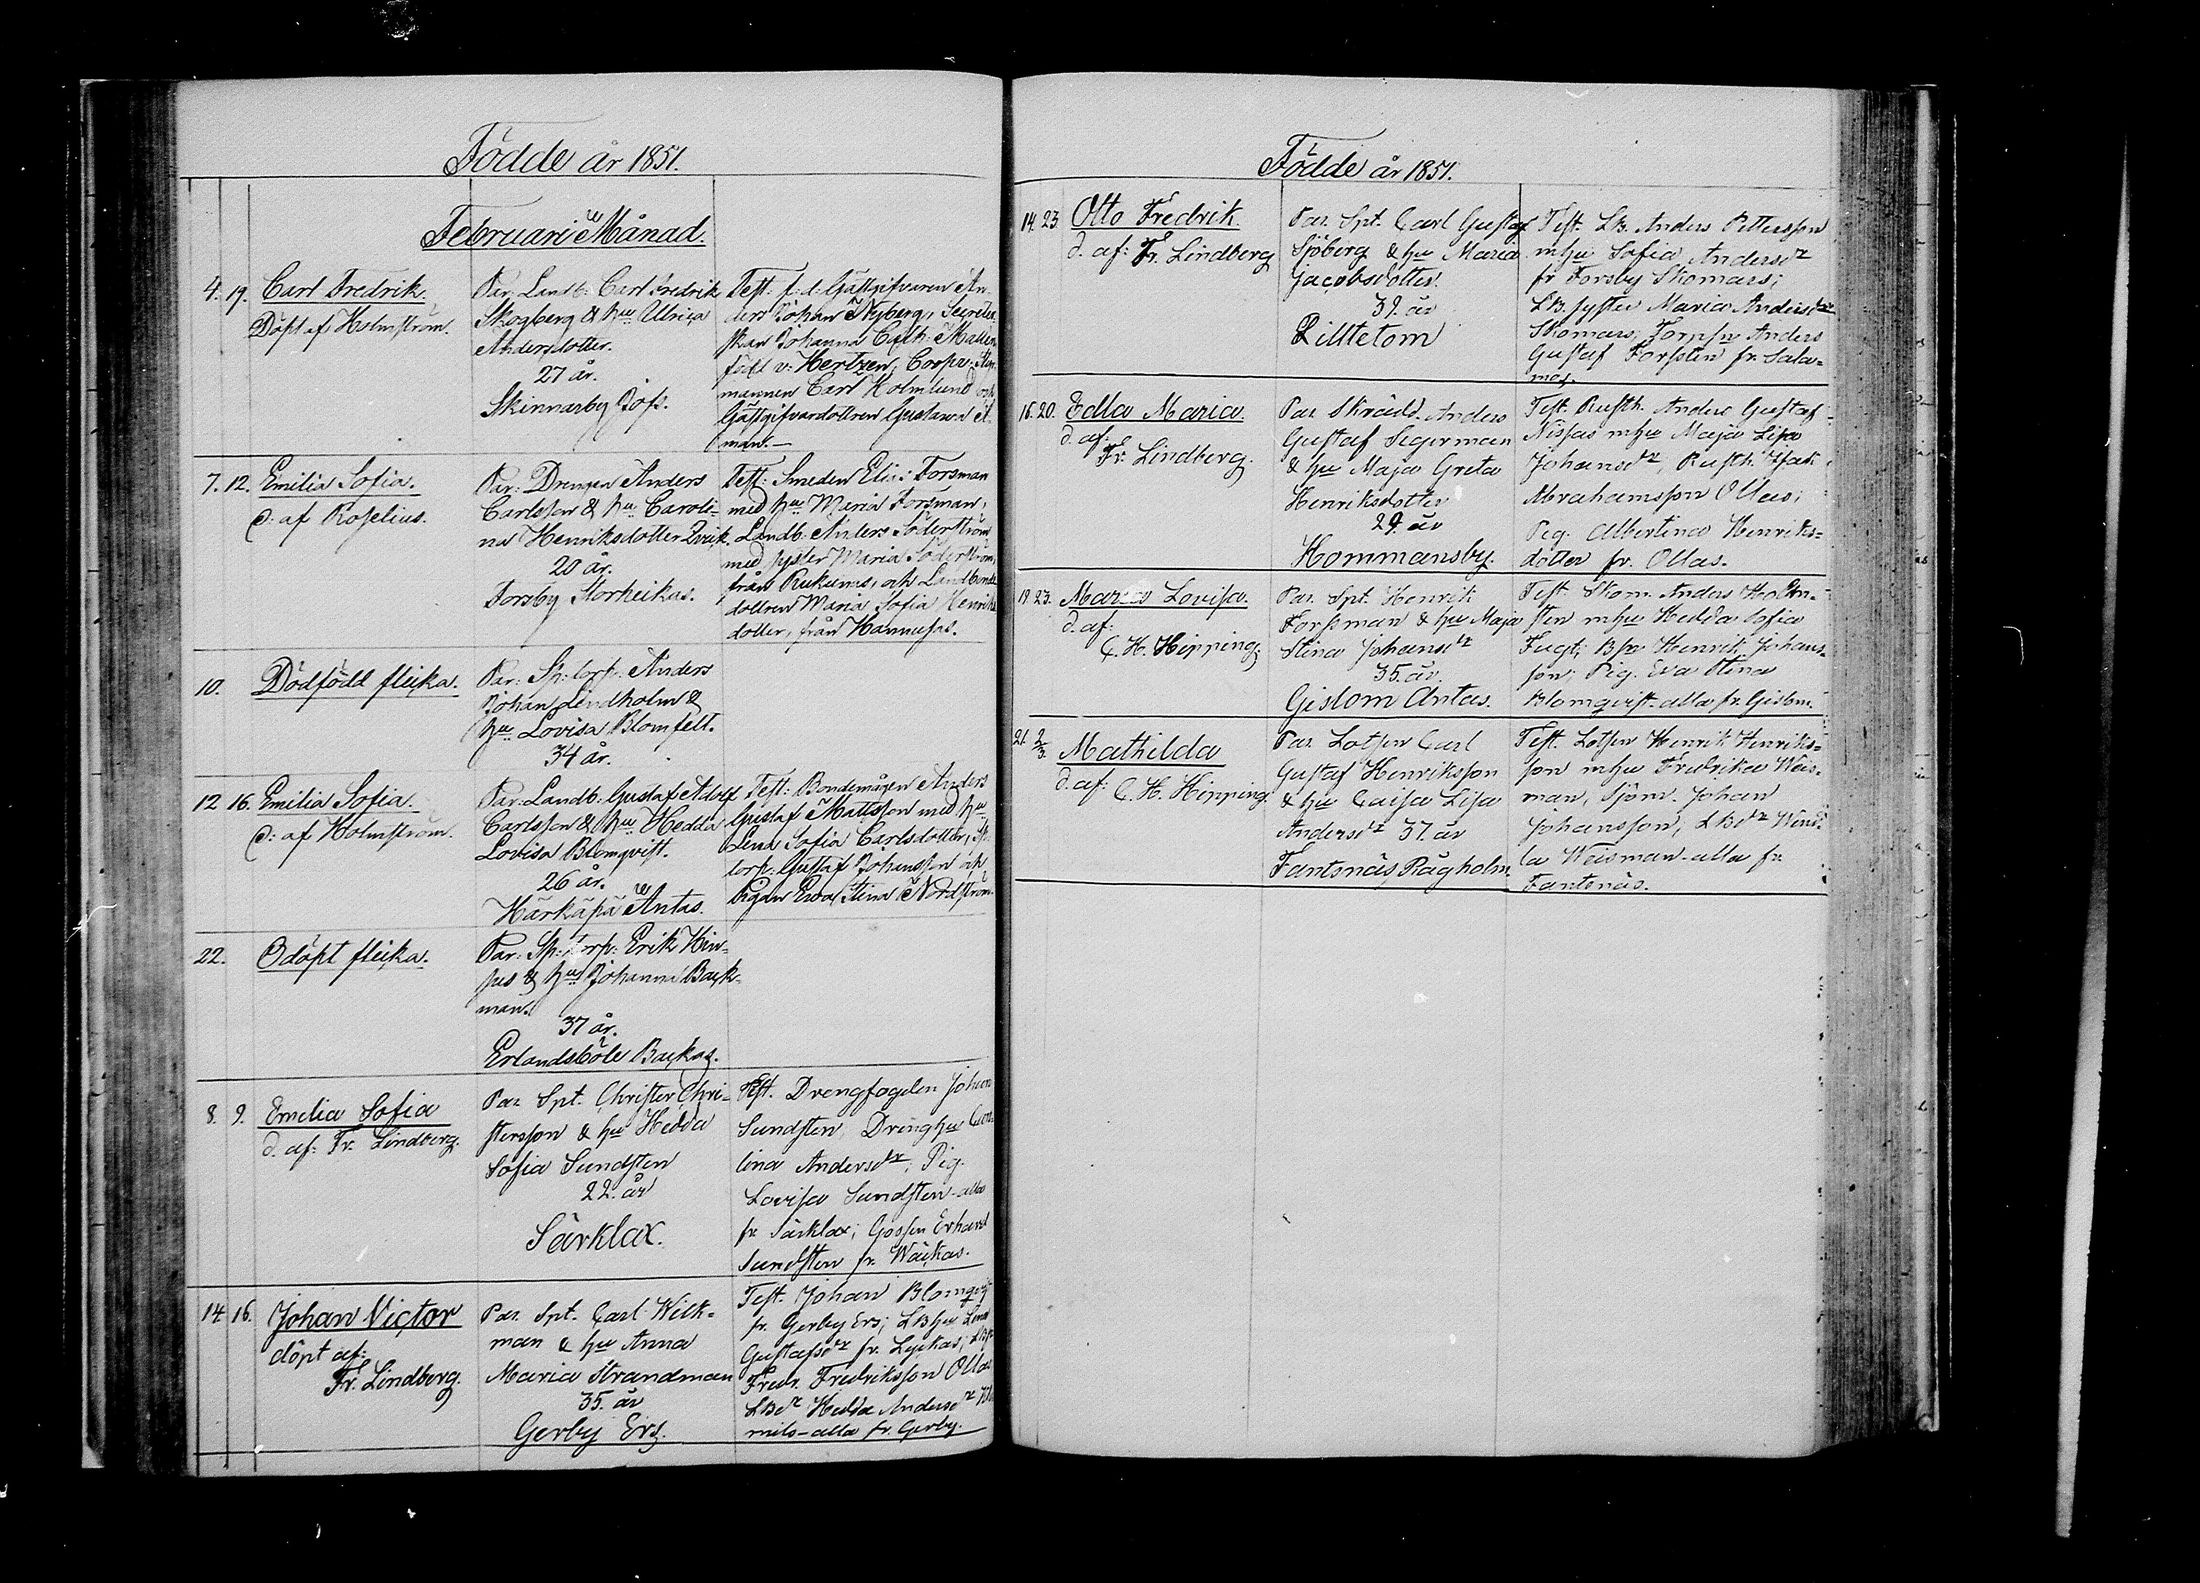 Födde år 1851.
Februari Månad.
4. 19. Carl Fredrik.
Döpt af: Holmström.
Par. Landb. Carl Fredrik
Skogberg & hu Ulrica
Andersdotter.
27 år.
Skinnarby Jofs.
Test: f: d: Gästgifvaren An-
ders Johan Nyberg, Secrete
skan Johanna Cath: Mallen
född v: Hertzen,
mannen Carl Holmlund och
Gästgifvardottren Gustava
man.—
7. 12. Emilia Sofia.
d: af Roselius.
Par: Drengen Anders
Carlsson & hu Caroli-
na Henriksdotter Qvick.
20 år.
Forsby Storheikas.
Test: Smeden Elis Forsman
med hu Maria Forsman,
Landb: Anders Söderström
med syster Maria Söderström
från och Landbonde
dottren Maria Sofia Henriks
dotter, från Hannusas.
10. Dödfödd flicka.
Par: Sp: torp: Anders
Johan Lindholm &
hu Lovisa Blomfelt.
34 år.
12 16. Emilia Sofia.
d: af Holmström.
Par: Landb: Gustaf Adolf
Carlsson & hu Hedda
Lovisa Blomqvist.
26 år.
Härkäpä Antas.
Test: Bondemågen Anders
Gustaf Mattsson med hu
Lena Sofia Carlsdotter, Sp:
torp: Gustaf Johansson och
Pigan Eva Stina Nordström.
22. Odöpt flicka.
Par: Sp: torp: Erik Hin-
sus & hu Johanna Back-
man.
37 år.
Erlandsböle Backas.
8. 9. Emelia Sofia
d. af: Fr. Lindberg.
Par. Spt. Christer Chri-
stersson & hu Hedda
Sofia Sundsten
22. år
Särklax.
Test. Drengfogden Johan
Sundsten, Dring hu Caro
lina Andersdr, Pig.
Lovisa Sundsten - alla
fr Särklax; Gossen Erhard
Sundsten fr. Wäckas.
14. 16. Johan Victor
döpt af:
Fr. Lindberg.
Par. Spt. Carl Wilk-
man & hu Anna
Maria Strandman
35. år
Gerby Ers.
Test. Johan Blomqvist
fr. Gerby Ers; LB hu Lena
Gustafsdr fr. Lyckas;
Fredr. Fredriksson Ollas
LBdr Hedda Andersdr
mils - alla fr. Gerby.
Födde år 1851.
14. 23. Otto Fredrik.
d. af: Fr. Lindberg
Par. Spt. Carl Gustaf
Sjöberg & hu Maria
Jacobsdotter.
39. år
Lilltetom
Test. LB. Anders Pettersson
m hu Sofia Andersdr
fr Forsby Skomars;
LB. syster Maria Andersdr
Skomars; Torpsn Anders
Gustaf Forsten fr. Sala-
mos.
16. 20. Edla Maria.
d. af:
Fr. Lindberg.
Par Skrädd. Anders
Gustaf Segerman
& hu Maja Greta
Henriksdotter
29. år
Hommansby.
Test. Rusth. Anders Gustaf
Nissas m hu Maja Lisa
Johansdr, Rusth. Isak
Abrahamsson Ollas;
Pig. Albertina Henriks-
dotter fr. Ollas.
19. 23. Maria Lovisa.
d. af:
C. H. Hipping.
Par. Spt. Henrik
Forssman & hu Maja
Stina Johansdr
35. år.
Gislom Antas.
Test. Skom. Anders Holm-
sten m hu Hedda Sofia
Fugt; Bsn Henrik Johans-
son, Pig. Eva Stina
Blomqvist - alla fr. Gislom.
21. 2/3. Mathilda
d. af: C. H. Hipping.
Par. Lotsen Carl
Gustaf Henriksson
& hu Caisa Lisa
Andersdr 37. år
Fantsnäs Rågholm.
Test. Lotsen Henrik Henriks-
son m hu Fredrika Weis-
man, Sjöm. Johan
Johansson, LBdr Wend-
la Weisman - alla fr.
Fantsnäs.